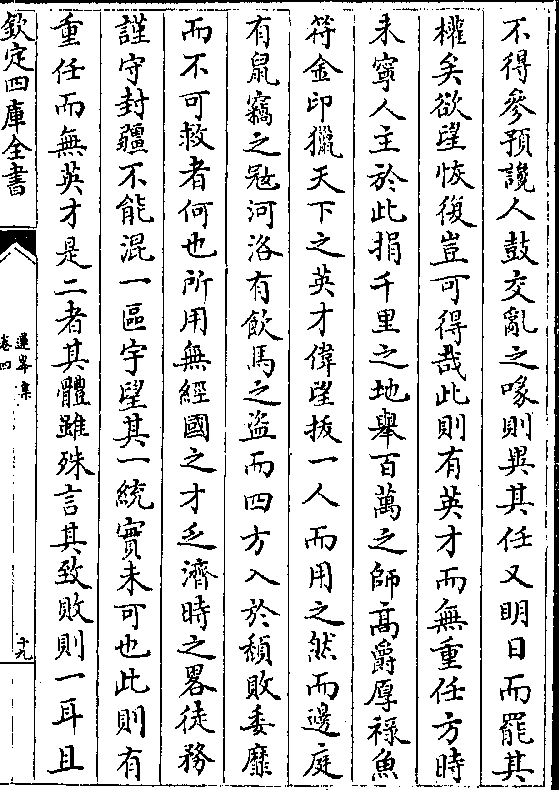 不得參預讒人鼓交亂之喙則異其任又明日而罷其
權矣欲望恢復豈可得哉此則有英才而無重任方時
未寧人主於此捐千里之地舉百萬之師高爵厚祿魚
符金印獵天下之英才偉望拔一人而用之然而邊庭
有鼠竊之㓂河洛有飲馬之盗而四方入於頽敗委靡
而不可救者何也所用無經國之才乏濟時之畧徒務
謹守封疆不能混一區宇望其一統實未可也此則有
重任而無英才是二者其體雖殊言其致敗則一耳且
欽定四庫全書
蓮峯集
卷四
十九